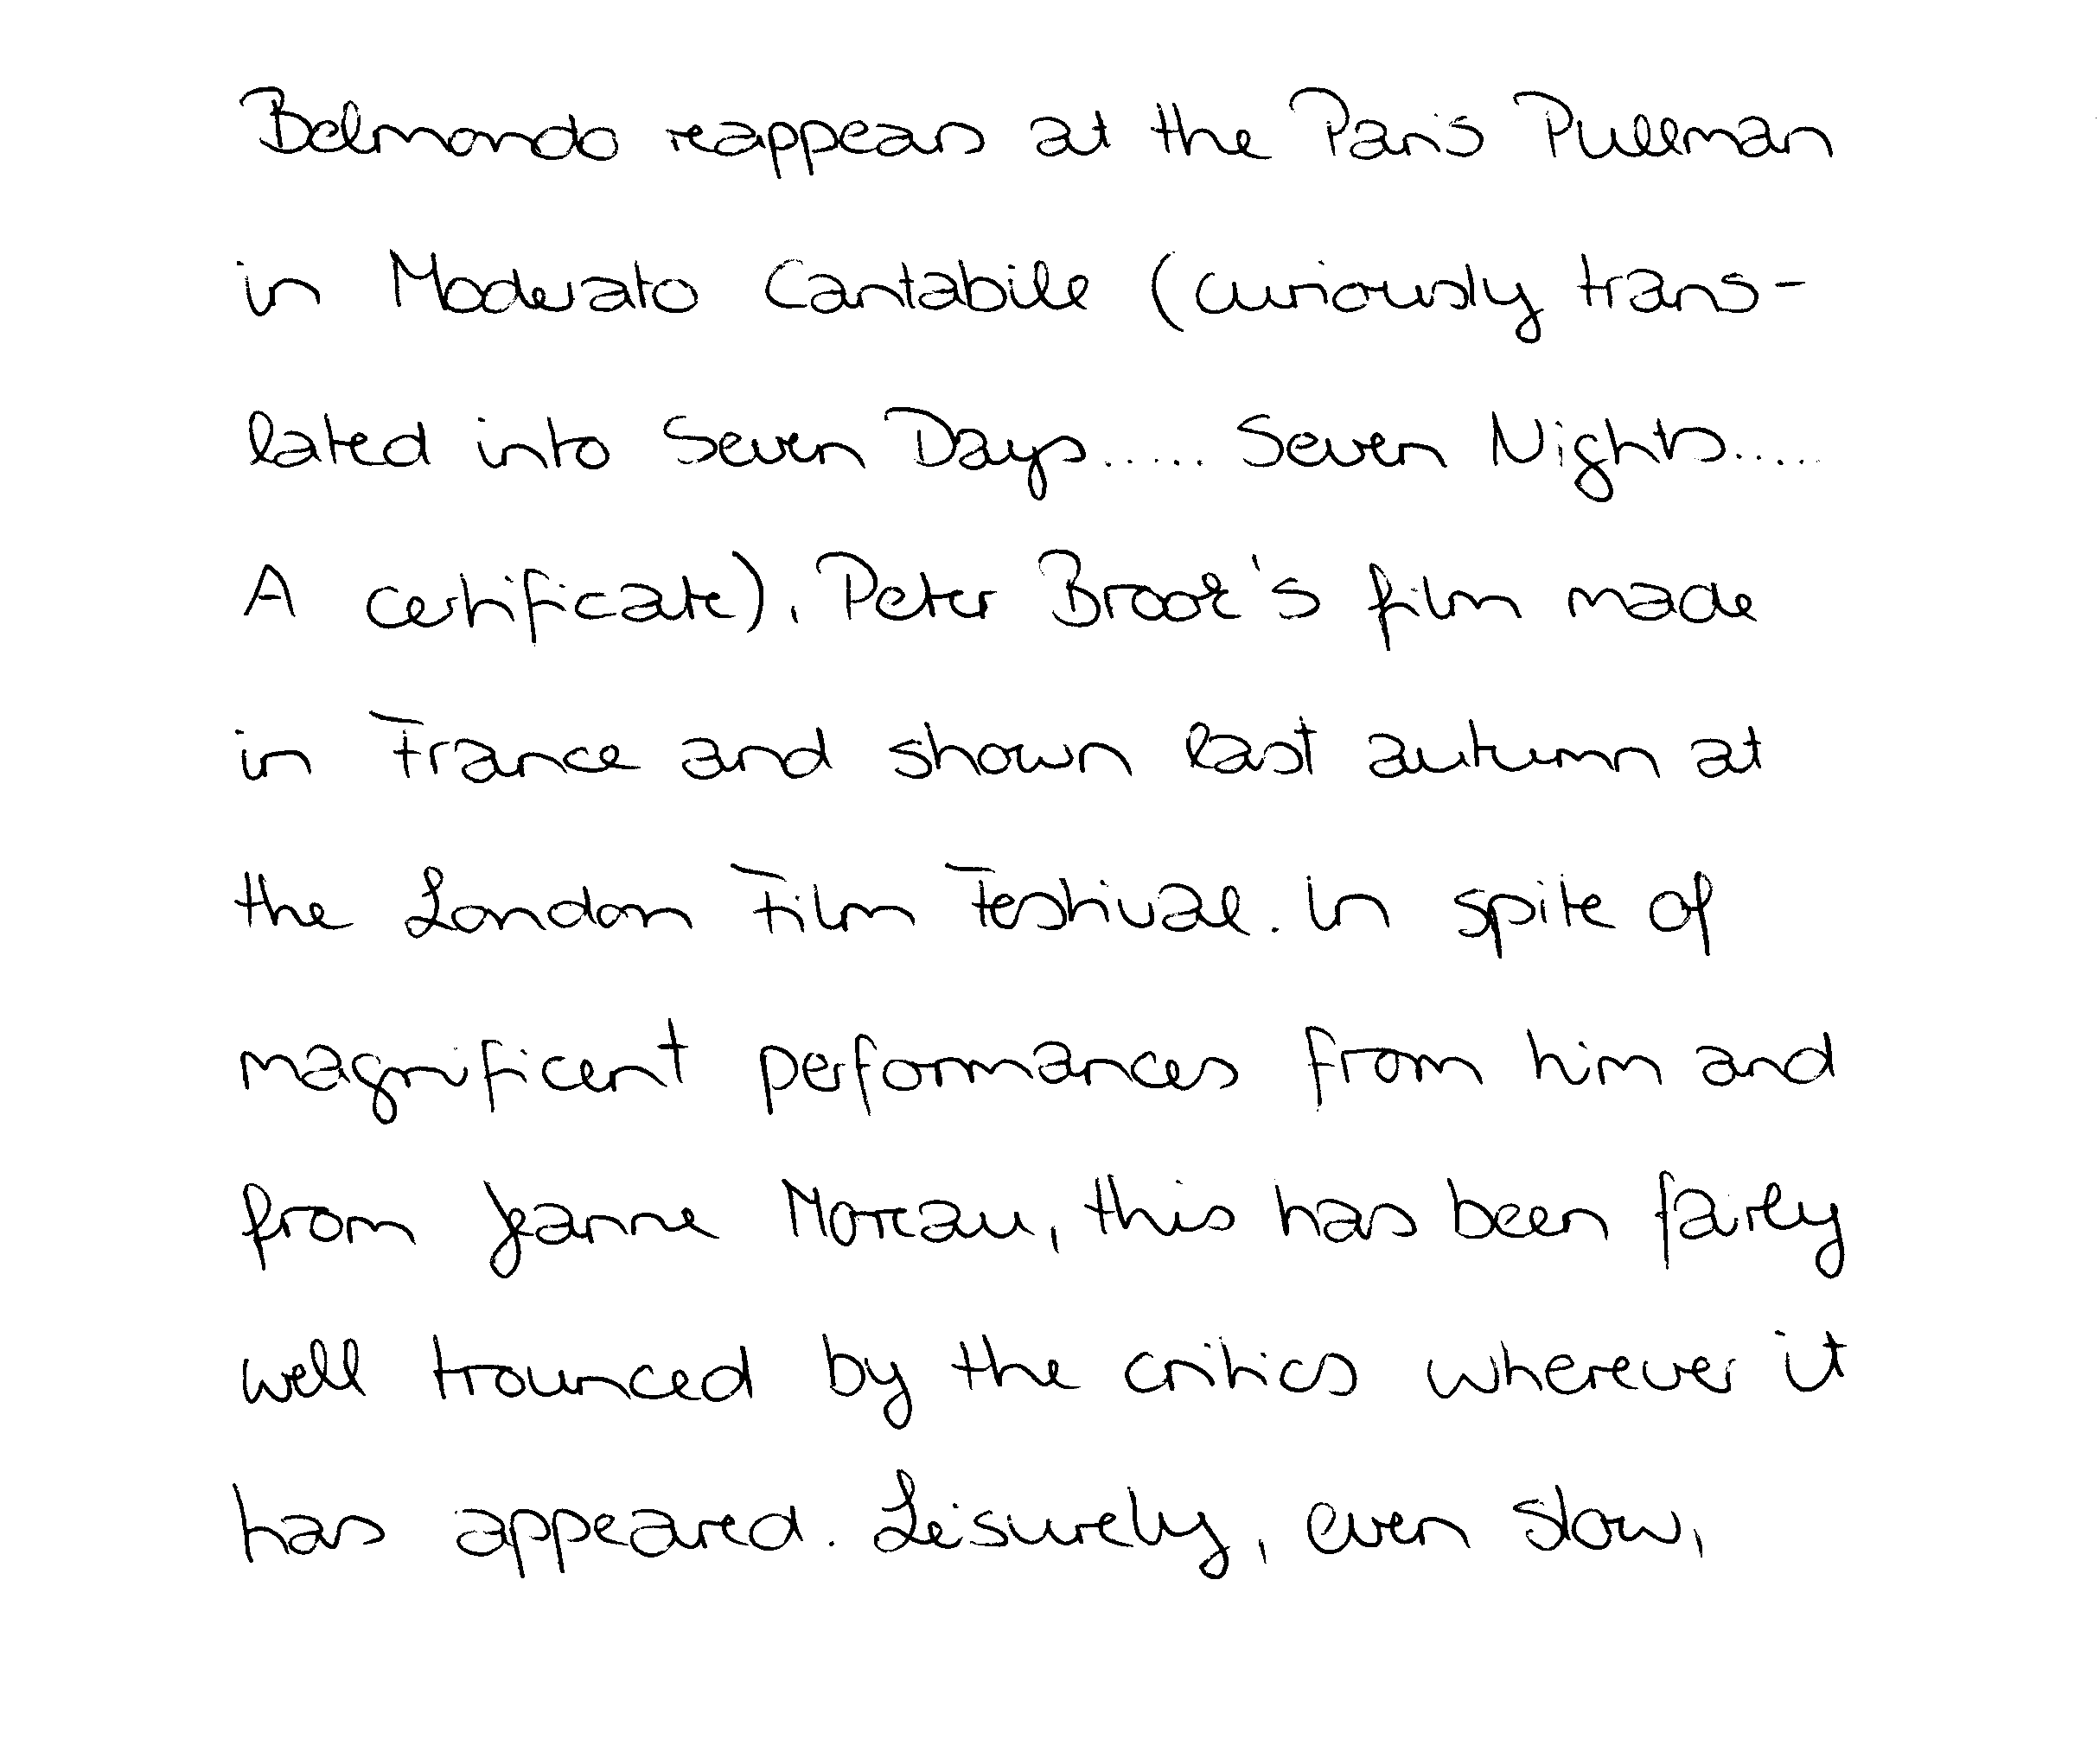 Belmondo reappears at the Paris Pullman
in Moderato Cantabile (curiously trans-
lated into Seven Days..... Seven Nights.....
A certificate), Peter Brook's film made
in France and shown last autumn at
the London Film Festival. In spite of
magnificent performances from him and
from Jeanne Moreau, this has been fairly
well trounced by the critics wherever it
has appeared. Leisurely, even slow,